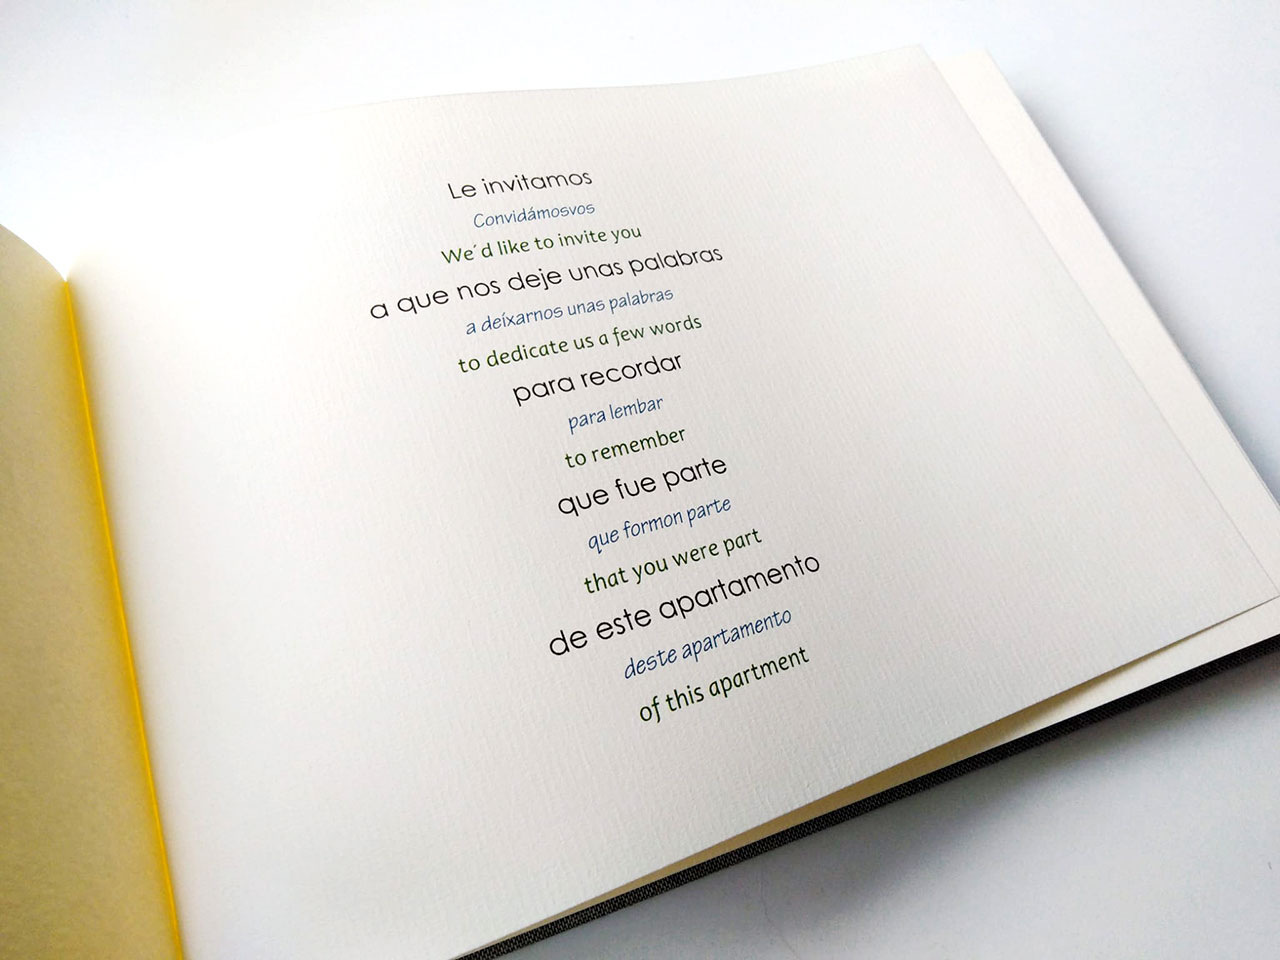 Le invitamos
Convidámosvos
We´d like to invite you
a que nos deje unas palabras
a deíxarnos unas palabras
to dedicate us a few words
para recordar
para lembar
to remember
que fue parte
que formon parte
that you were part
de este apartamento
deste apartamento
of this apartment